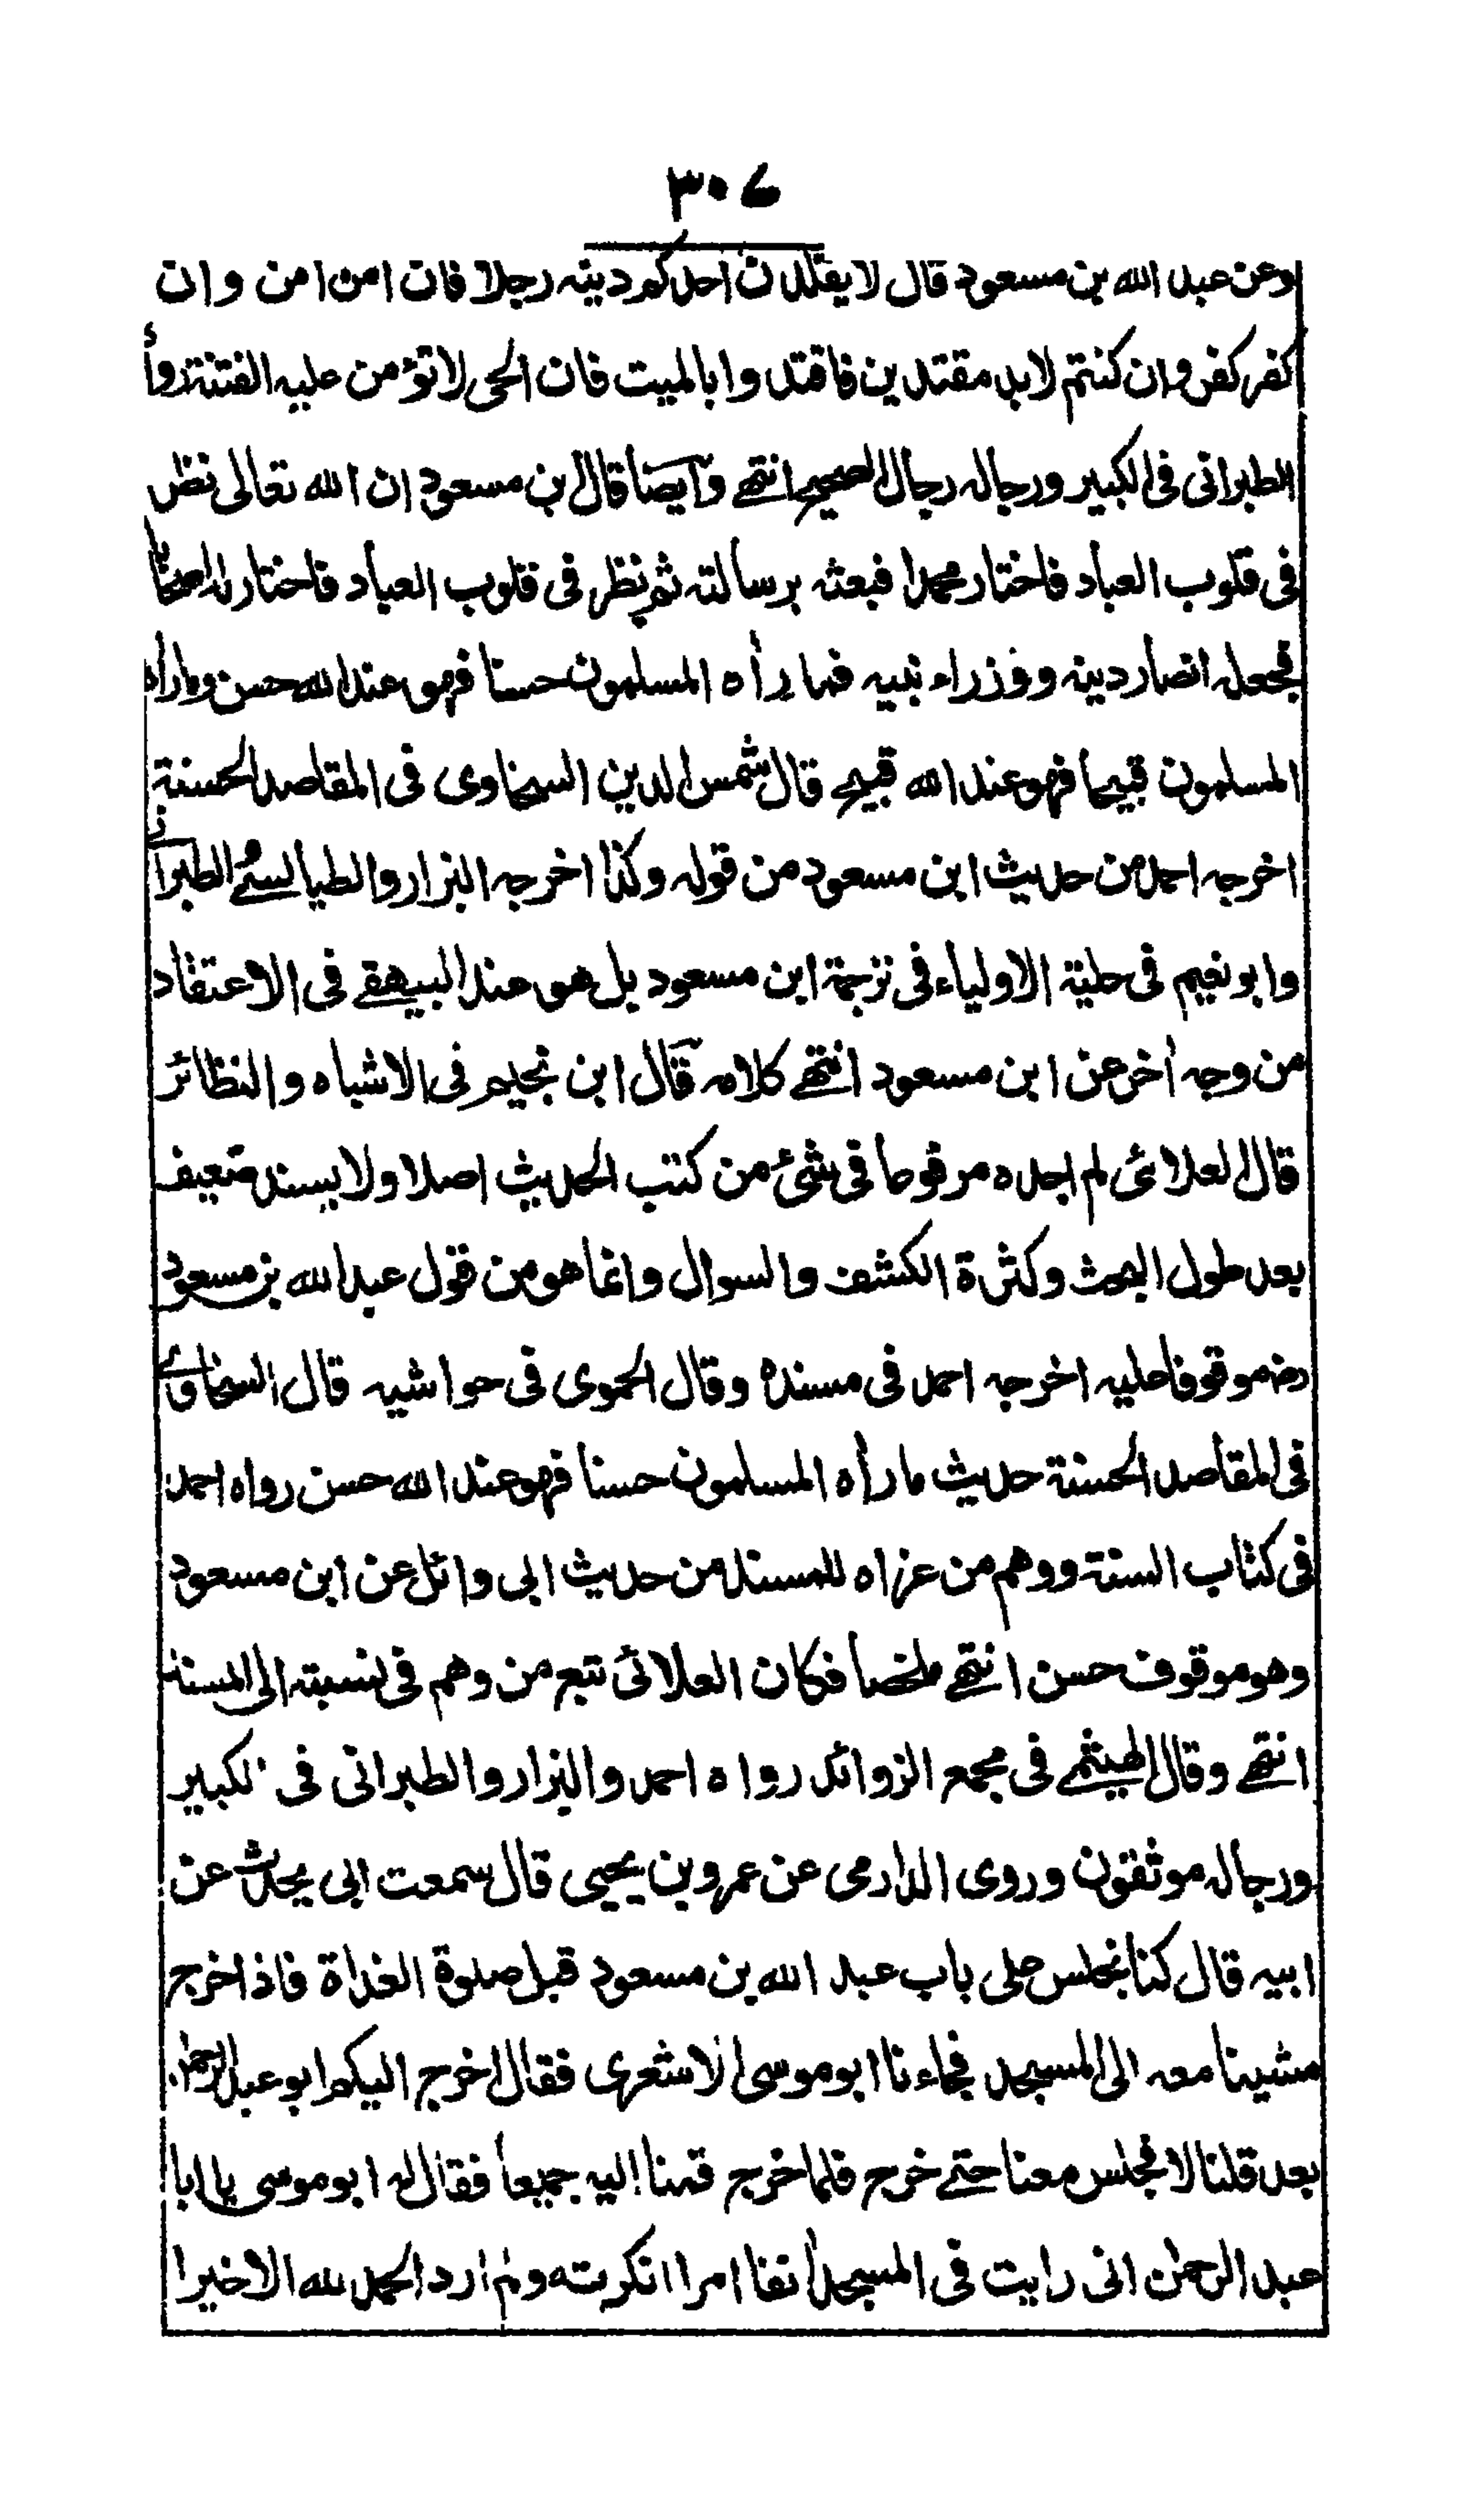 ٣٠٤
وعن عبد الله بن مسعود قال لا يقلدن احدكم دينه رجلا فان امن امن وان
كفر كفر وان كنتم لابد مقتدين فاقتدوا بالميت فان الحي لا تؤمن عليه الفتنة رواه
الطبراني في الكبير ورجاله رجال الصحيح انتهى وايضا قال بن مسعود ان الله تعالى نظر
في قلوب العباد فاختار محمدا فبعثه برسالته ثم نظر في قلوب العباد فاختار له اصحابا
فجعله انصار دينه ووزراء نبيه فما رأه المسلمون حسنا فهو عند الله حسن وما رأه
المسلمون قبيحا فهو عند الله قبيح قال شمس الدين السخاوي في المقاصد الحسنة
اخرجه احمد من حديث ابن مسعود من قوله وكذا اخرجه البزار والطيالسي والطبراني
وابو نعيم في حلية الاولياء في ترجمة ابن مسعود بل هو عند البيهقي في الاعتقاد
من وجه أخر عن ابن مسعود انتهى كلامه قال ابن نجيم في الاشباه والنظائر
قال العلائي لم اجده مرفوعا في شيء من كتب الحديث اصلا ولا بسند ضعيف
بعد طول البحث وكثرة الكشف والسوال وانما هو من قول عبد الله بن مسعود
رضـ موقوفا عليه اخرجه احمد في مسنده وقال الحموي في حواشيه قال السخاوي
في المقاصد الحسنة حديث ما رأه المسلمون حسنا فهو عند الله حسن رواه احمد
في كتاب السنة ووهم من عزاه للمسند من حديث ابي وائل عن ابن مسعود
وهو موقوف حسن انتهى ملخصا فكان العلائي تبع من وهم في نسبته الى المسند
انتهى وقال الهيثمي في مجمع الزوائد رواه احمد والبزار والطبراني في الكبير
ورجاله موثقون وروى الدارمي عن عمرو بن يحيى قال سمعت ابي يحدث عن
ابيه قال كنا نجلس على باب عبد الله بن مسعود قبل صلوة الغداة فاذا خرج
مشينا معه الى المسجد فجاءنا ابو موسى الاشعري فقال اخرج اليكم ابو عبد الرحمن
بعد قلنا لا فجلس معنا حتى خرج فلما خرج قمنا اليه جميعا فقال له ابو موسى يا ابا
عبد الرحمن اني رايت في المسجد أنفا امرا انكرته ولم ارد الحمد لله الا خيرا